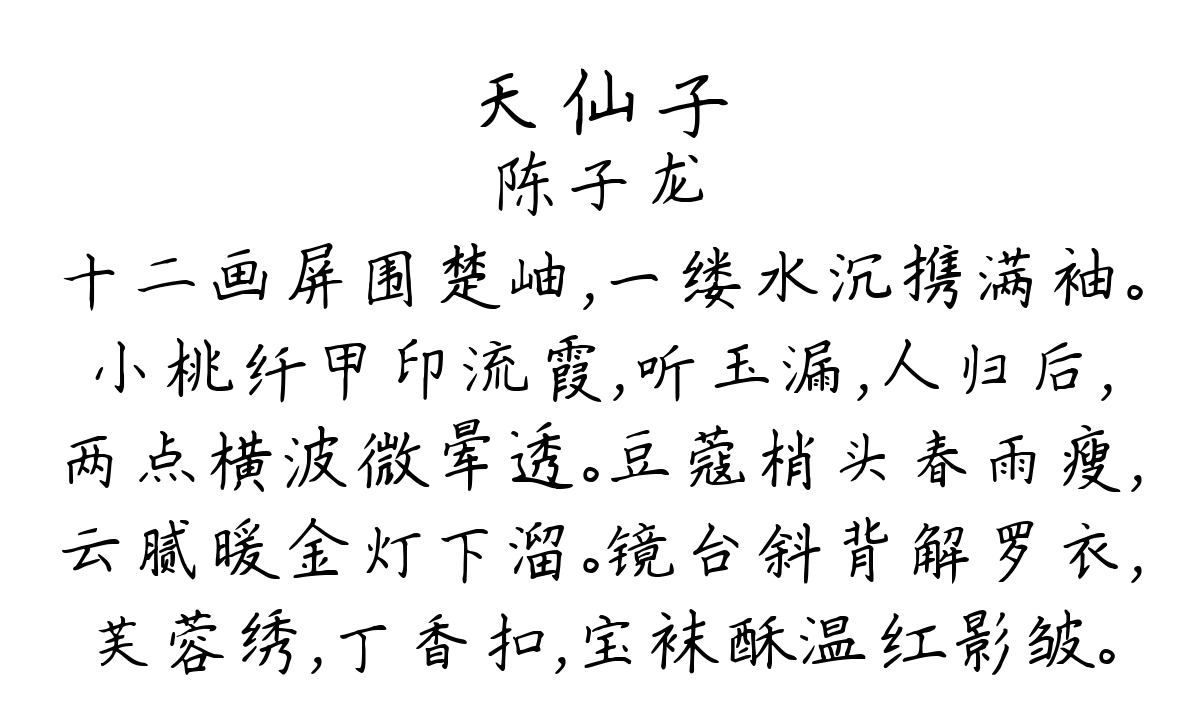 天仙子
陈子龙
十二画屏围楚岫,一缕水沉携满袖。
小桃纤甲印流霞,听玉漏,人归后,
两点横波微晕透。豆蔻梢头春雨瘦,
云腻暖金灯下溜。镜台斜背解罗衣,
芙蓉绣,丁香扣,宝袜酥温红影皱。